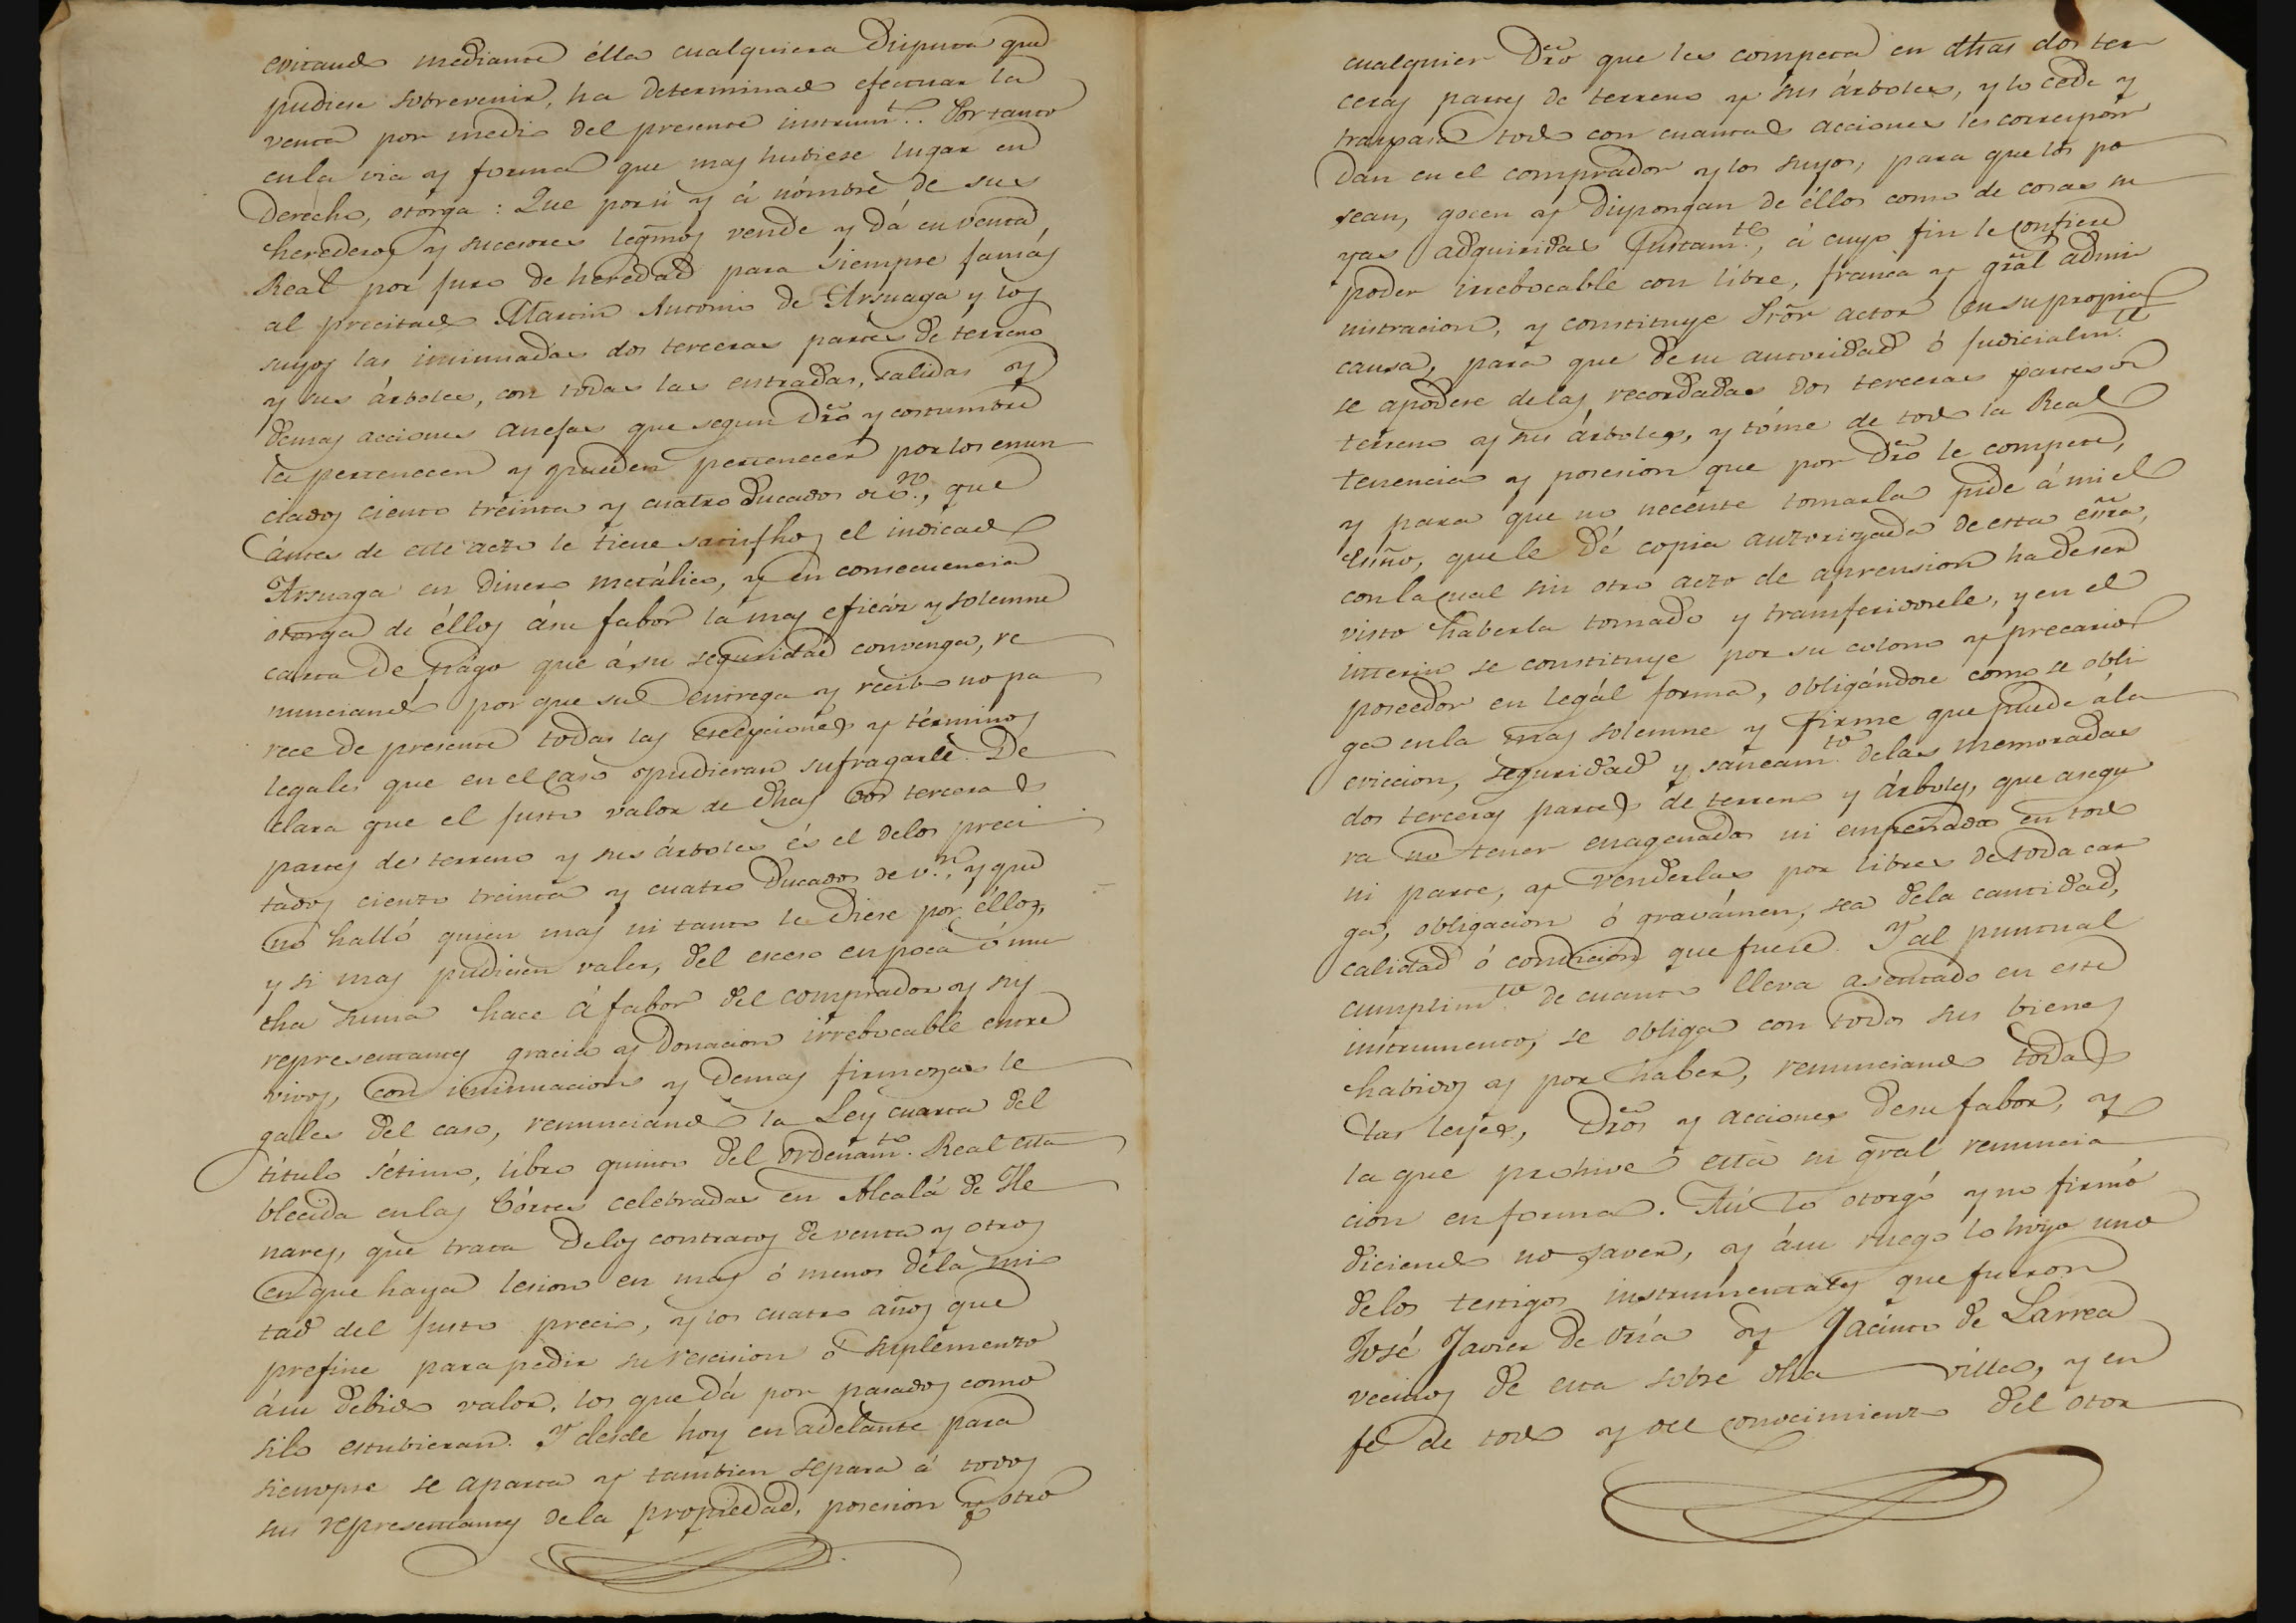 evitando mediante élla cualquiera disputa que
pudiese sobrevenir, ha determinado efectuar la
venta por medio del presente instrumto. Por tanto
en la via y forma que mas hubiese lugar en
Derecho, otórga: Que por si y á nómbre de sus
herederos y sucesores legmos vende y dá en venta
Real por juro de heredad para siempre jamás
al precitado Martin Antonio de Arsuaga y los
suyos las insinuadas dos terceras partes de terreno
y sus árboles, con todas las entradas, salidas y
demas acciones anejas que segun dro y costumbre
le pertenecen y pueden pertenecer por los enun
ciados ciento treinta y cuatro ducados de vn, que
ántes de este acto le tiene satisfhos el indicado
Arsuaga en dinero metálico, y en consecuencia
otorga de éllos á su fabor la mas eficáz y solemne
carta de págo que á su seguridad convenga, re
nunciando por que su entrega y recibo no pa
rece de presente todas las escepciones y términos
legales que en el caso pudieran sufragarle. De
clara que el justo valor de dhas dos terceras
partes de terreno y sus árboles és el de los preci
tados ciento treinta y cuatro ducados de v.n, y que
no halló quien mas ni tanto le diese por éllos,
y si mas pudiesen valer, del esceso en poca ó mu
cha suma hace á fabor del comprador y sus
representantes gracia y donacion irrebocable entre
vivos, con insinuacion y demas firmezas le
gales del caso, renunciando la Ley cuarta del
título sétimo, libro quinto del ordenamto Real esta
blecida en las Córtes celebradas en Alcalá de He
nares, que trata de los contratos de venta y otros
en que haya lesion en mas ó menos de la mi
tad del justo precio, y los cuatro años que
prefine para pedir su rescision ó suplemento
á su debido valor, los que dá por pasados como
si lo estubieran. Y desde hoy en adelante para
siempre se aparta y tambien separa á todos
sus representantes de la propiedad, posesion y otro
cualquier Dro que les competa en dhas dos ter
ceras partes de terreno y sus árboles, y lo cede y
traspasa todo con cuantas acciones les correspon
dan en el comprador y los suyos, para que los po
sean, gocen y dispongan de éllos como de cosas su
yas adquiridas justamte, á cuyo fin le confiere
poder irrebocable con libre, franca y gral admi
nistracion, y constituye Prór actor en su propia
causa, para que de su autoridad ó judicialmte
se apodere de las recordadas dos terceras partes de
terreno y sus árboles, y tóme de todo la Real
tenencia y posesion que por Dro le compete,
y para que no necesite tomarla pide á mi el
Esñro, que le dé copia autorizada de esta esñra,
con la cual sin otro acto de aprension ha de ser
visto haberla tomado y transferidosele, y en el
interin se constituye por su colono y precario
poseedor en legál forma, obligándose como se obli
ga en la mas solemne y firme que puede á la
eviccion, seguridad y saneamto de las memoradas
dos terceras partes de terreno y árboles, que asegu
ra no tener enagenadas ni empeñadas en todo
ni parte, y venderlas por libres de toda car
ga, obligacion ó gravámen, sea de la cantidad,
calidad ó condicion que fuere. Y al puntual
cumplimto de cuanto lleva asentado en este
instrumento, se obliga con todos sus bienes
habidos y por haber, renunciando todas
las leyes, Dros y acciones de su fabor, y
la que prohive esta su gral renuncia
cion en forma. Así lo otorgó y no firmó
diciendo no saver, y á su ruego lo hizo uno
de los testigos instrumentales que fueron
José Javier de Oria y Jacinto de Larrea
vecinos de esta sobre dha villa, y en
fé de todo y del conocimiento del otor